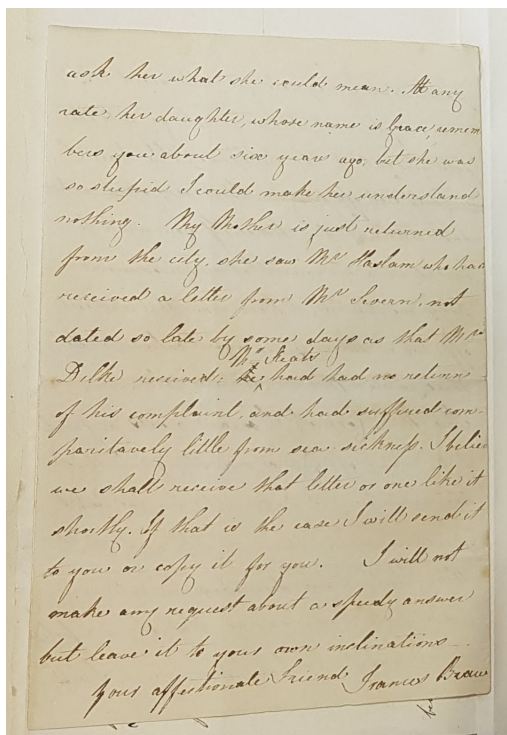 ask her what she could mean. At any
rate, her daughter, whose name is Grace, remem
bers you about six years ago, but she was
so stupid I could make her understand
nothing. My Mother is just returned
from the city. she saw Mr Haslam who had
received a letter from Mr Severn, not
dated so late by some days as that Mr
Mr Keats
Dilke received; he had had no return
of his complaint, and had suffered com
paritavely little from sea sickness. I belie
we shall receive that letter or one like it
shortly. If that is the case I will send it
to you or copy it for you. I will not
make any request about a speedy answer
but leave it to your own inclinations
Your affectionate Friend Frances Braw